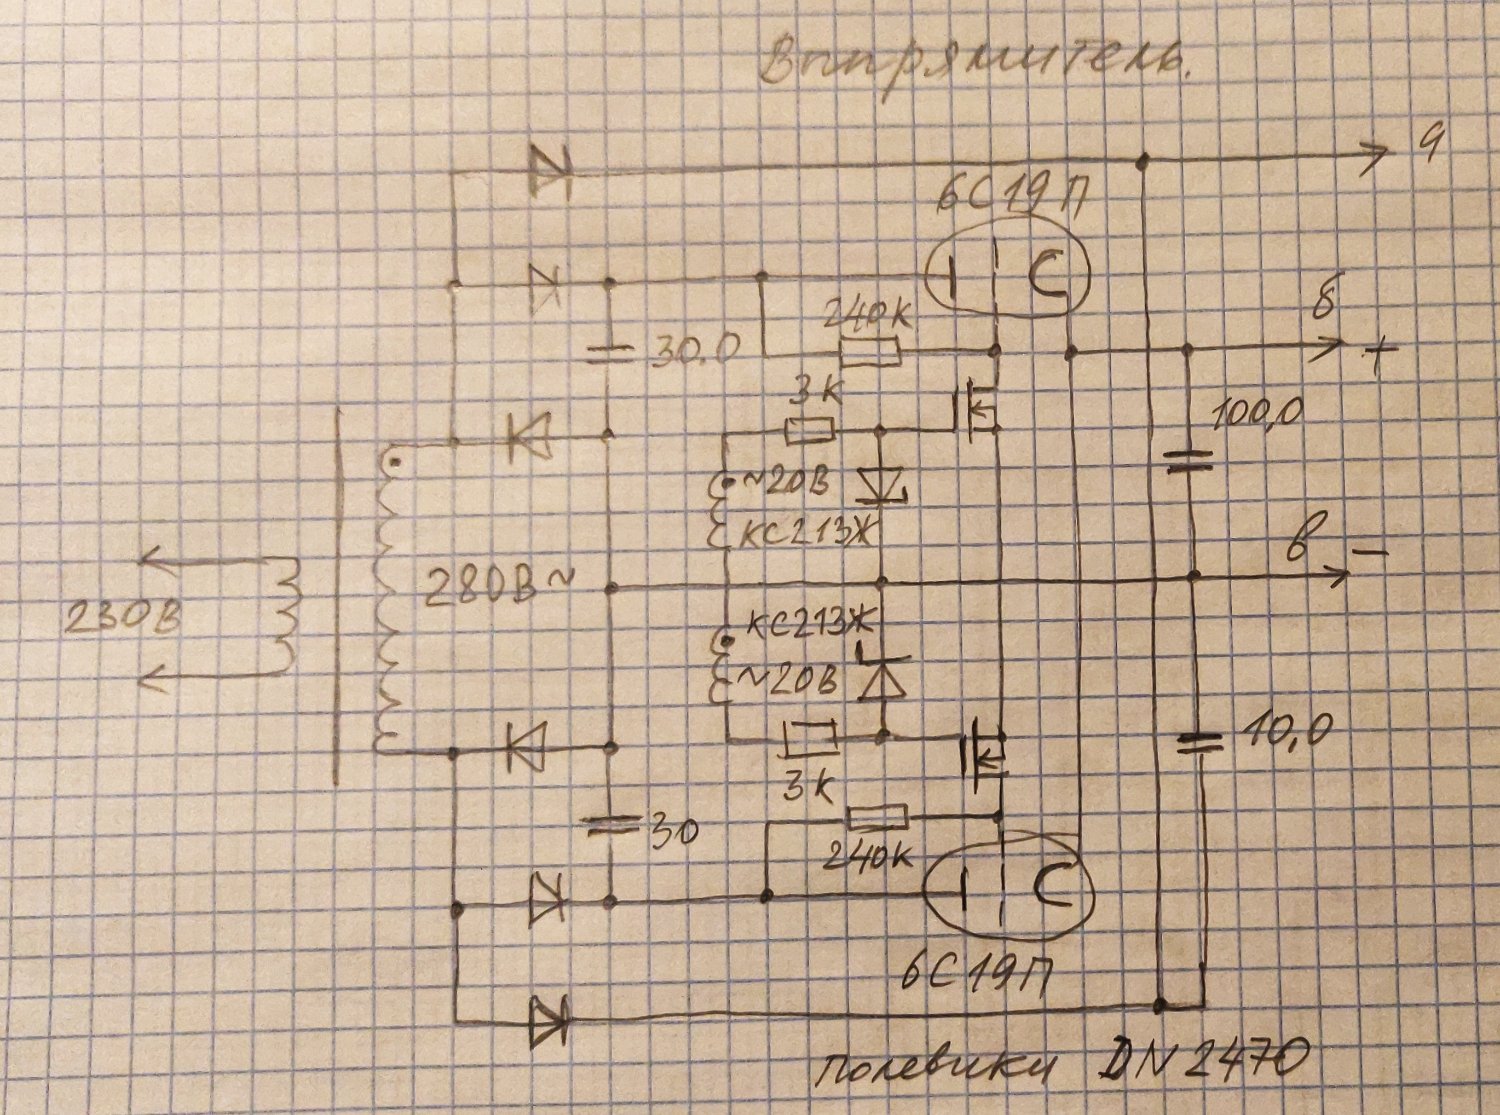 Выпрямитель.
а
6С19П
б
240к
30.0
+
3к
100,0
~20В
КС213Ж
в
−
280В~
230В
КС213Ж
~20В
10,0
3к
30
240к
6С19П
полевики DN2470